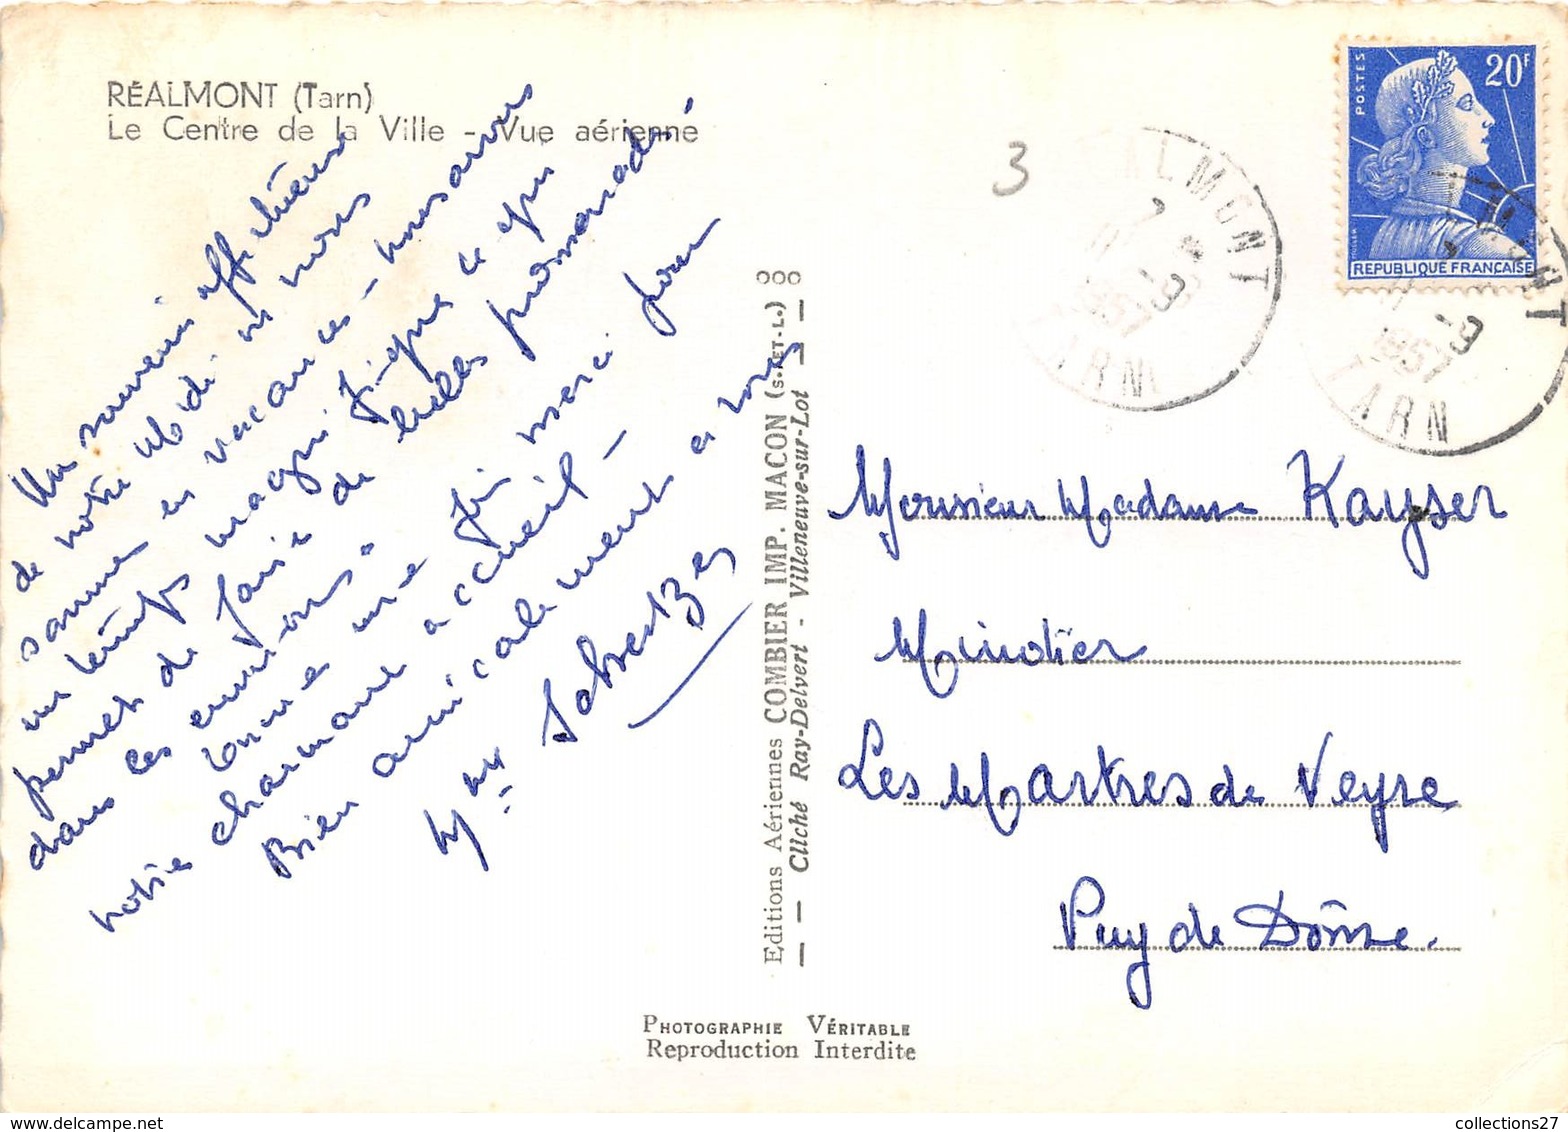 RÉALMONT (Tarn)
Le Centre de la Ville - Vue aérienne
Un souvenir affectueux
de notre Midi où nous
sommes en vacances - nous avons
un temps magnifique ce qui
permet de faire de belles promenades
dans les environs.
Encore une fois merci pour
votre charmant accueil -
Bien amicalement à vous
000
Editions Aériennes COMBIER IMP. MACON (S.-ET-L.)
Cliché Ray-Delvert - Villeneuve-sur-Lot
3
20F
POSTES
REPUBLIQUE FRANÇAISE
ALMONT
1957
TARN
MONT
1957
TARN
Monsieur Madame Kayser
Minotier
Les Martres de Veyre
Puy de Dôme.
PHOTOGRAPHIE VÉRITABLE
Reproduction Interdite
collections27